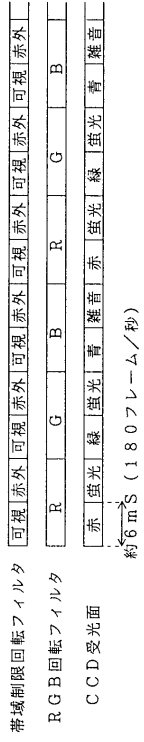 帯域制限回転フィルタ 可視 赤外 可視 赤外 可視 赤外 可視 赤外 可視 赤外 可視 赤外
RGB回転フィルタ R G B R G B
CCD受光面 赤 蛍光 緑 蛍光 青 雑音 赤 蛍光 緑 蛍光 青 雑音
約6mS(180フレーム/秒)